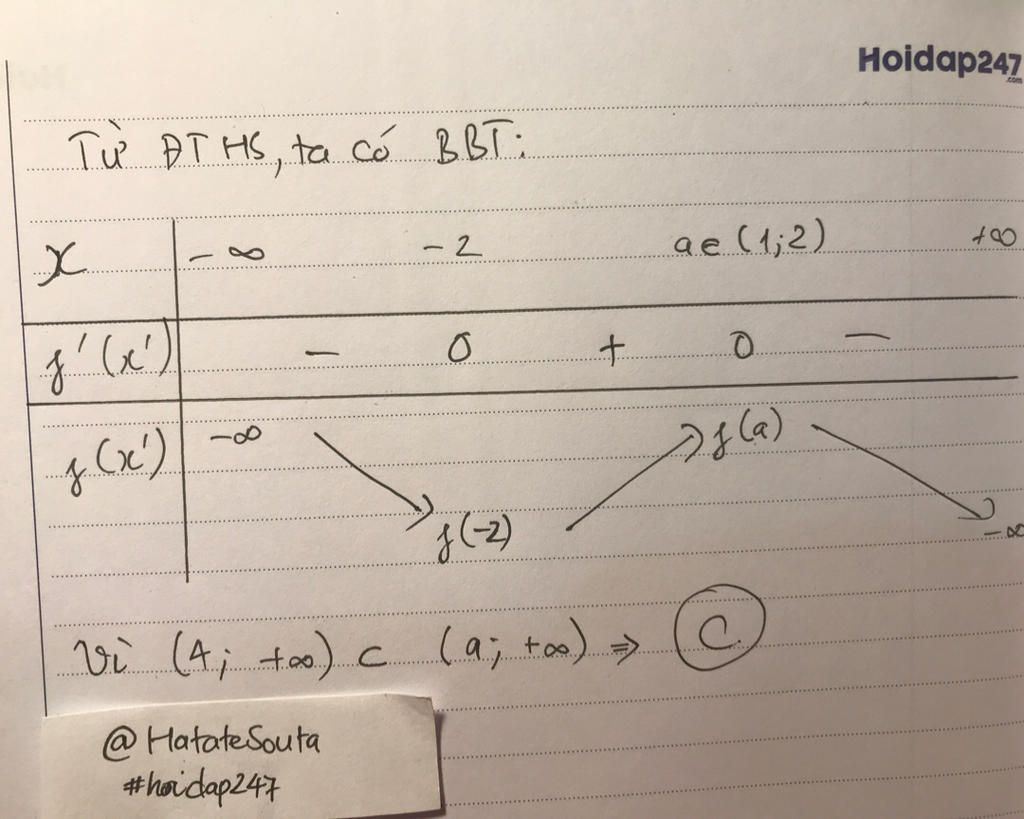 Hoidap247
.com
Từ ĐTHS, ta có BBT:
x -∞ -2 a∈(1;2) +∞
f'(x') - 0 + 0 -
f(x') -∞ ↘ f(-2) ↗ f(a) ↘ -∞
Vì (4; +∞) ⊂ (a; +∞) ⇒ C
@HatateSouta
#hoidap247